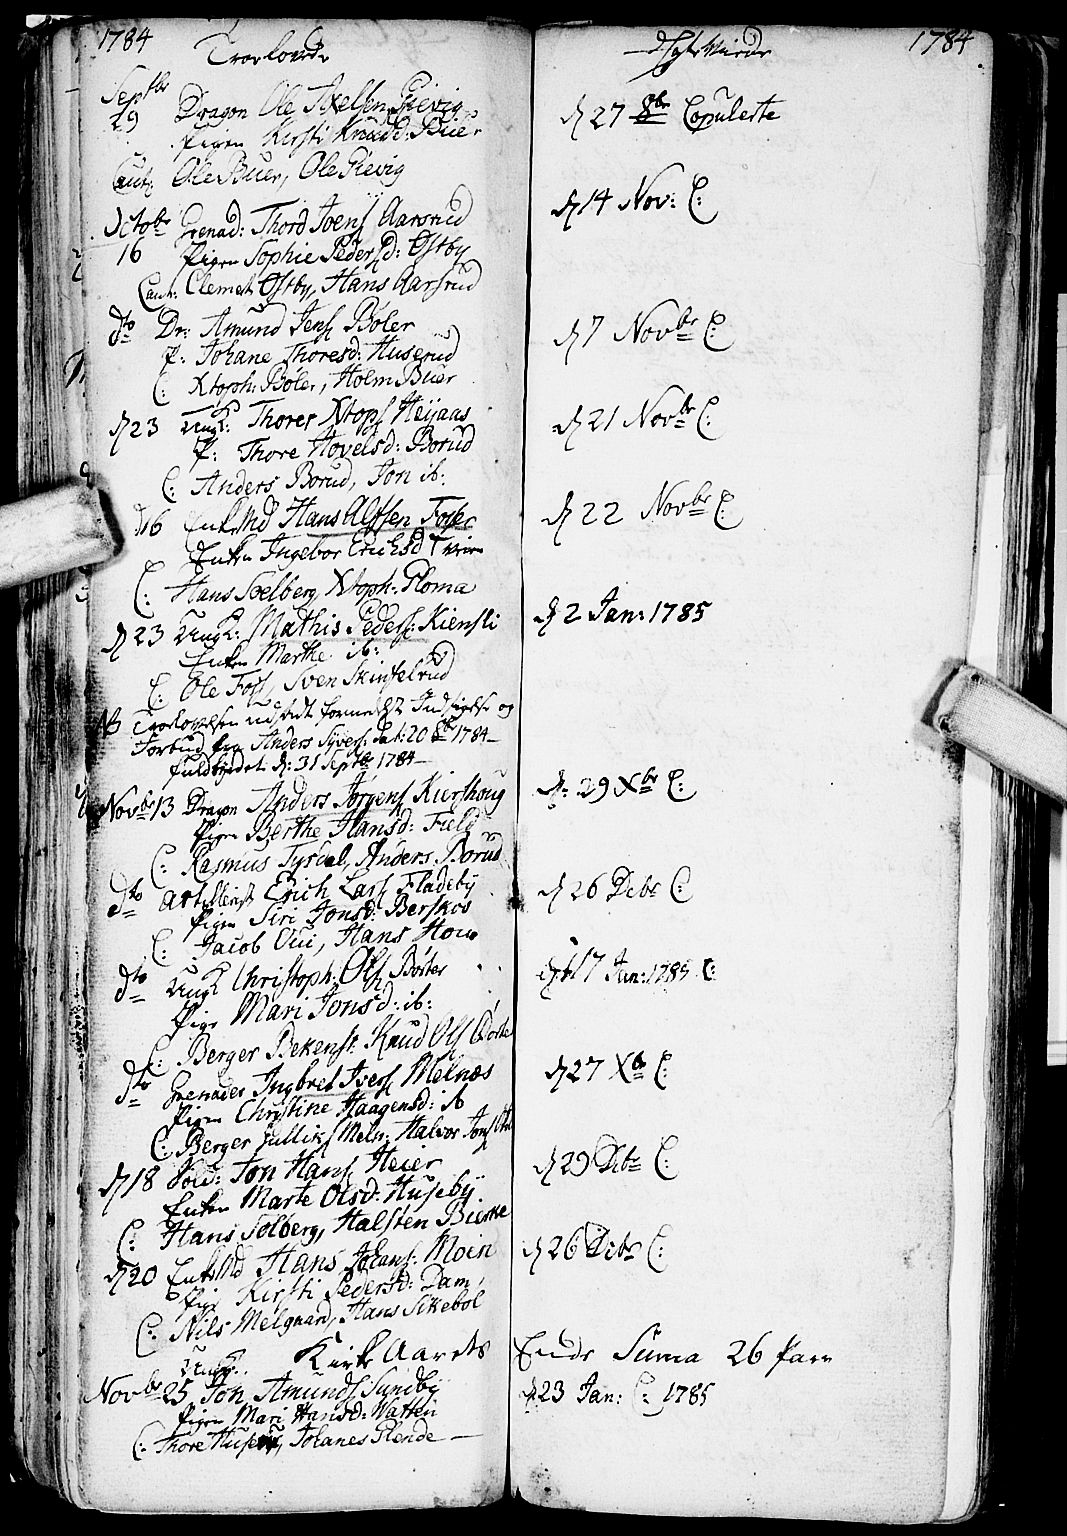 1784
Troelovede
Septbr
29 Dragon Ole Axelsen Gievig
Pigen Kirsti Knudsd: Buer
Caut: Ole Buer, Ole Gievig
Octobr Grenad: Thord Joens Aarsrud
16 Pigen Sophie Pedersd: Østby
Caut: Clemet Østby, Hans Aarsrud
dto Dr: Amund Jens Bøler
P: Johane Thoresd: Huserud
C: Xtoph: Bøler, Holm Buer
d 23 Ungk: Thorer Xtops Heyaas
P: Thore Hovelsd: Borud
C: Anders Borud, Jon ib:
d 16 Enkemd Hans Olssen Fosser
Enken Ingebor Erichsd
C: Hans Solberg, Xtoph: Gloma
d 23 Ungk: Mathis Peders: Kiensli
Enken Marthe ib:
C: Ole Foss, Sven Skinfelrud
NB Troelovelsen udsadt formedelst Indsigelse og
Forbud fra Anders Syvers: dat: 20 8br 1784 —
fuldbyrdet d: 31 Septbr 1784 —
Novbr 13 Dragon Anders Jørgens Kiershoug
Pigen Berthe Hansd: Field
C: Rasmus Tysdal, Anders Borud
dto Artillerist Erich Lars Fladeby
Pigen Siri Jonsd: Berskov
C: Jacob Oui, Hans Hou
dto Ungk Christoph: Ols Børter
Pige Mari Jonsd: ib:
C: Berger Bekenst: Knud Ols Børte
dto Grenader Ingbret Ivers Melnæs
Pigen Christine Haagensd: ib
C: Berger Gulliks Meln: Halvor Jons
d 18 Sold: Jon Hans Heier
Enken Marte Olsd: Huseby
C: Hans Solberg, Halsten Bierke
d 20 Enkemd Hans Johans: Moin
Pige Kirsti Pedersd: Dam
C: Nils Melgaard, Hans Sikebøl
Kirke Aarets
Ungk:
Novbr 25 Jon Amunds Sundby
Pigen Mari Hansd: Watten
C: Thore Huser, Johanes Glende —
Egte Viede
1784
d 27 8br Copulerte
d 14 Nov: C:
d 7 Novbr C:
d 21 Novbr C:
d 22 Novbr C:
d 2 Jan: 1785
d: 29 Xbr C:
d 26 Debr C:
d 17 Jan: 1785 C:
d 27 Xbr C:
d 29 Debr C:
d 26 Debr C:
Ende Suma 26 Parr
d 23 Jan: C: 1785